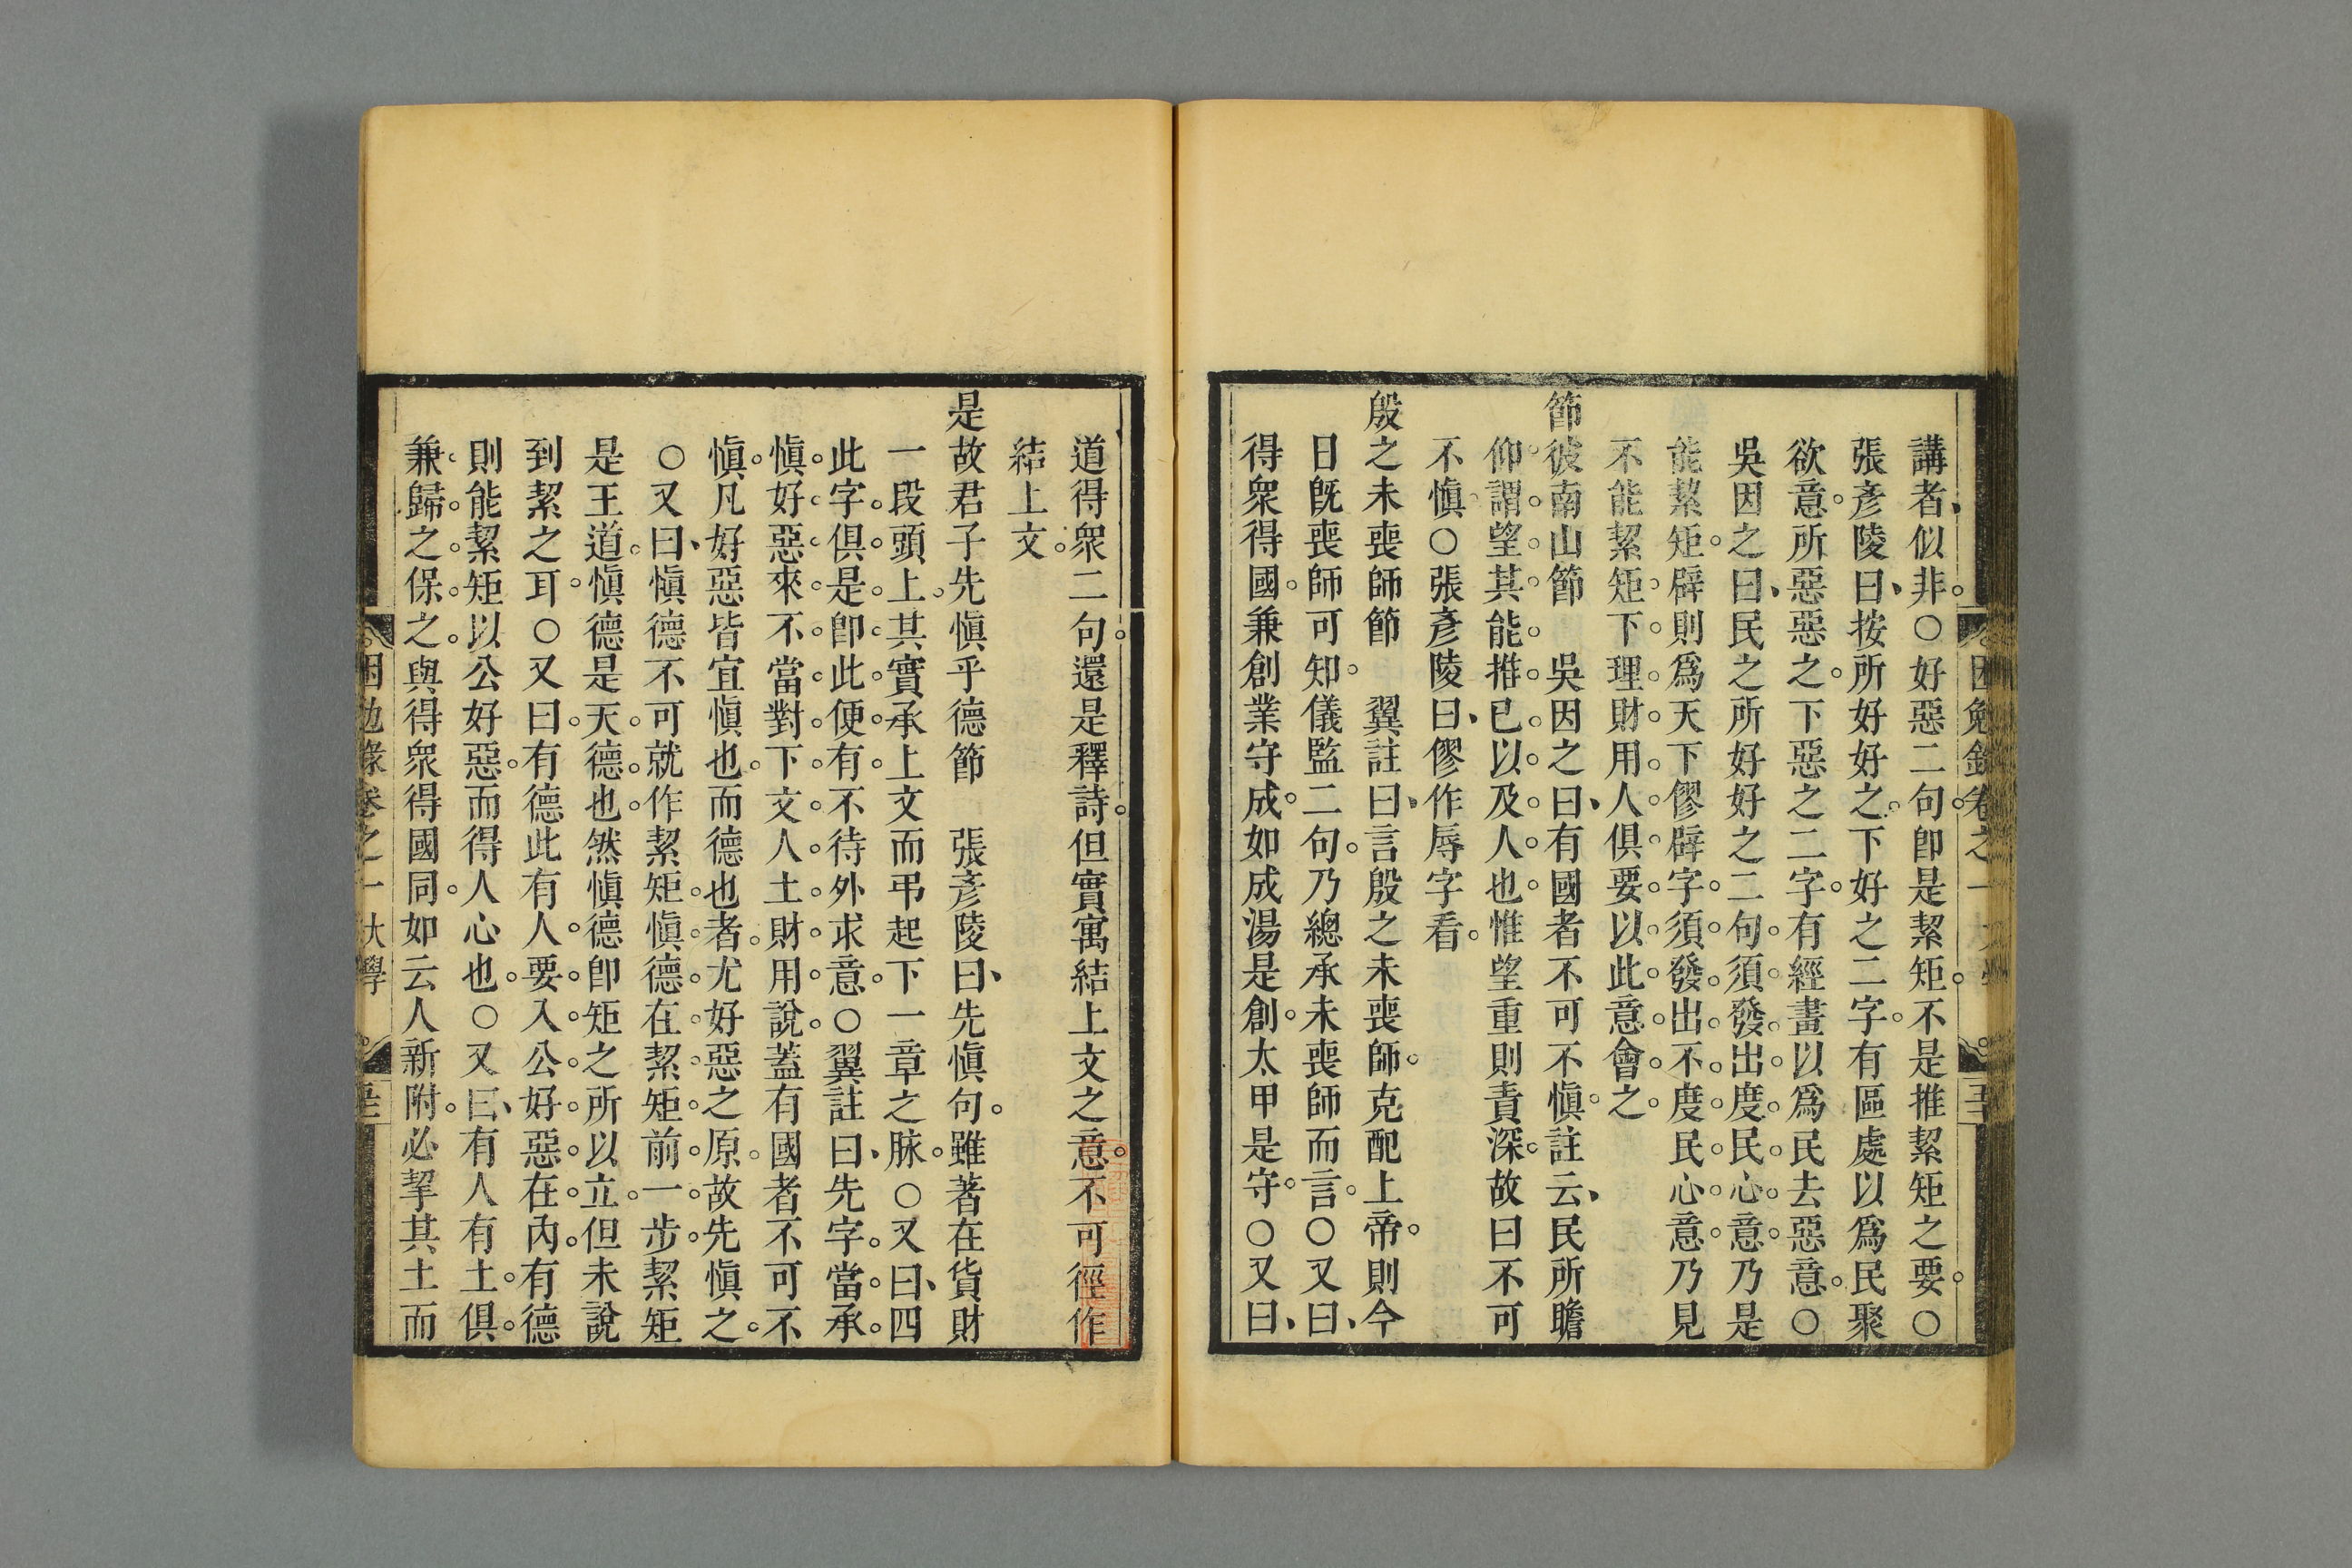 講者、似非。○好惡二句。卽是絜矩。不是推絜矩之要。○
張彥陵曰、按所好好之。下好之二字。有區處以爲民聚
欲意。所惡惡之。下惡之二字。有經畫以爲民去惡意。○
吳因之曰、民之所好好之二句。須。發。出。度。民。心。意。乃是
能絜矩。辟則爲天下僇。辟字。須。發。出。不。度。民。心。意。乃見
不能絜矩。下。理。財。用。人。俱。要。以。此。意。會。之。
節彼南山節　吳因之曰、有國者不可不愼。註云、民所瞻
仰。謂。望。其。能。推。已。以。及。人。也。惟望重則責深。故曰不可
不愼。○張彥陵曰、僇作辱字看。
殷之未喪師節　翼註曰、言殷之未喪師。克配上帝。則今
日旣喪師可知。儀監二句。乃總承未喪師而言。○又曰、
得衆得國。兼創業守成。如成湯是創。太甲是守。○又曰、
道得衆二句。還是釋詩。但實寓結上文之意。不可徑作
結上文。
是故君子先愼乎德節　張彥陵曰、先愼句。雖著在貨財
一段頭上。其實承上文而弔起下一章之脉。○又曰、四
此字。俱。是。卽。此。便。有。不。待。外。求。意。○翼註曰、先字。當。承。
愼。好。惡。來。不。當。對。下。文。人。土。財。用。說。蓋有國者不可不
愼。凡好惡皆宜愼也。而德也者。尤好惡之原。故先愼之。
○又曰、愼德不可就作絜矩。愼。德。在。絜。矩。前。一。步。絜矩
是王道。愼德是天德也。然愼德卽矩之所以立。但未說
到絜之耳。○又曰。有德此有人。要。入。公。好。惡。在。內。有德
則能絜矩以公好惡。而得人心也。○又曰、有人有土。俱。
兼。歸。之。保。之。與得衆得國同。如云人新附。必挈其土而
困勉錄卷之一　大學